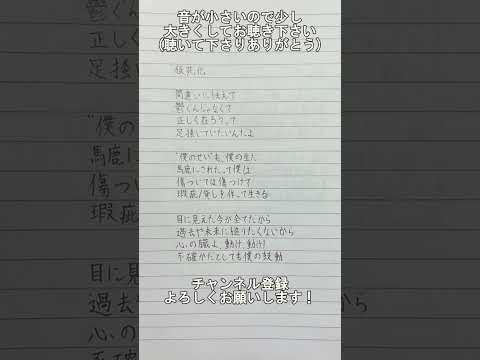 音が小さいので少し
大きくしてお聴き下さい
(聴いて下さりありがとう)
間違いに怯えて
鬱ぐんじゃなくて
正しく在ろうって
足掻いていたいんだよ
"僕のせい"も、僕の生に
馬鹿にされたって僕は
傷ついては傷つけて
瑕疵/貸しを作って生きる
目に見えた今が全てだから
過去や未来に縋りたくないから
心の臓よ、動け、動け!
不確かだとしても僕の鼓動
チャンネル登録
よろしくお願いします!